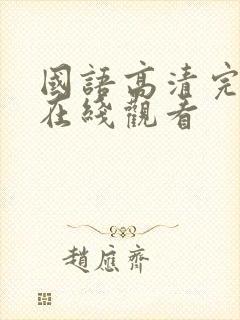 國語高清完
在綫觀看
趙應齊